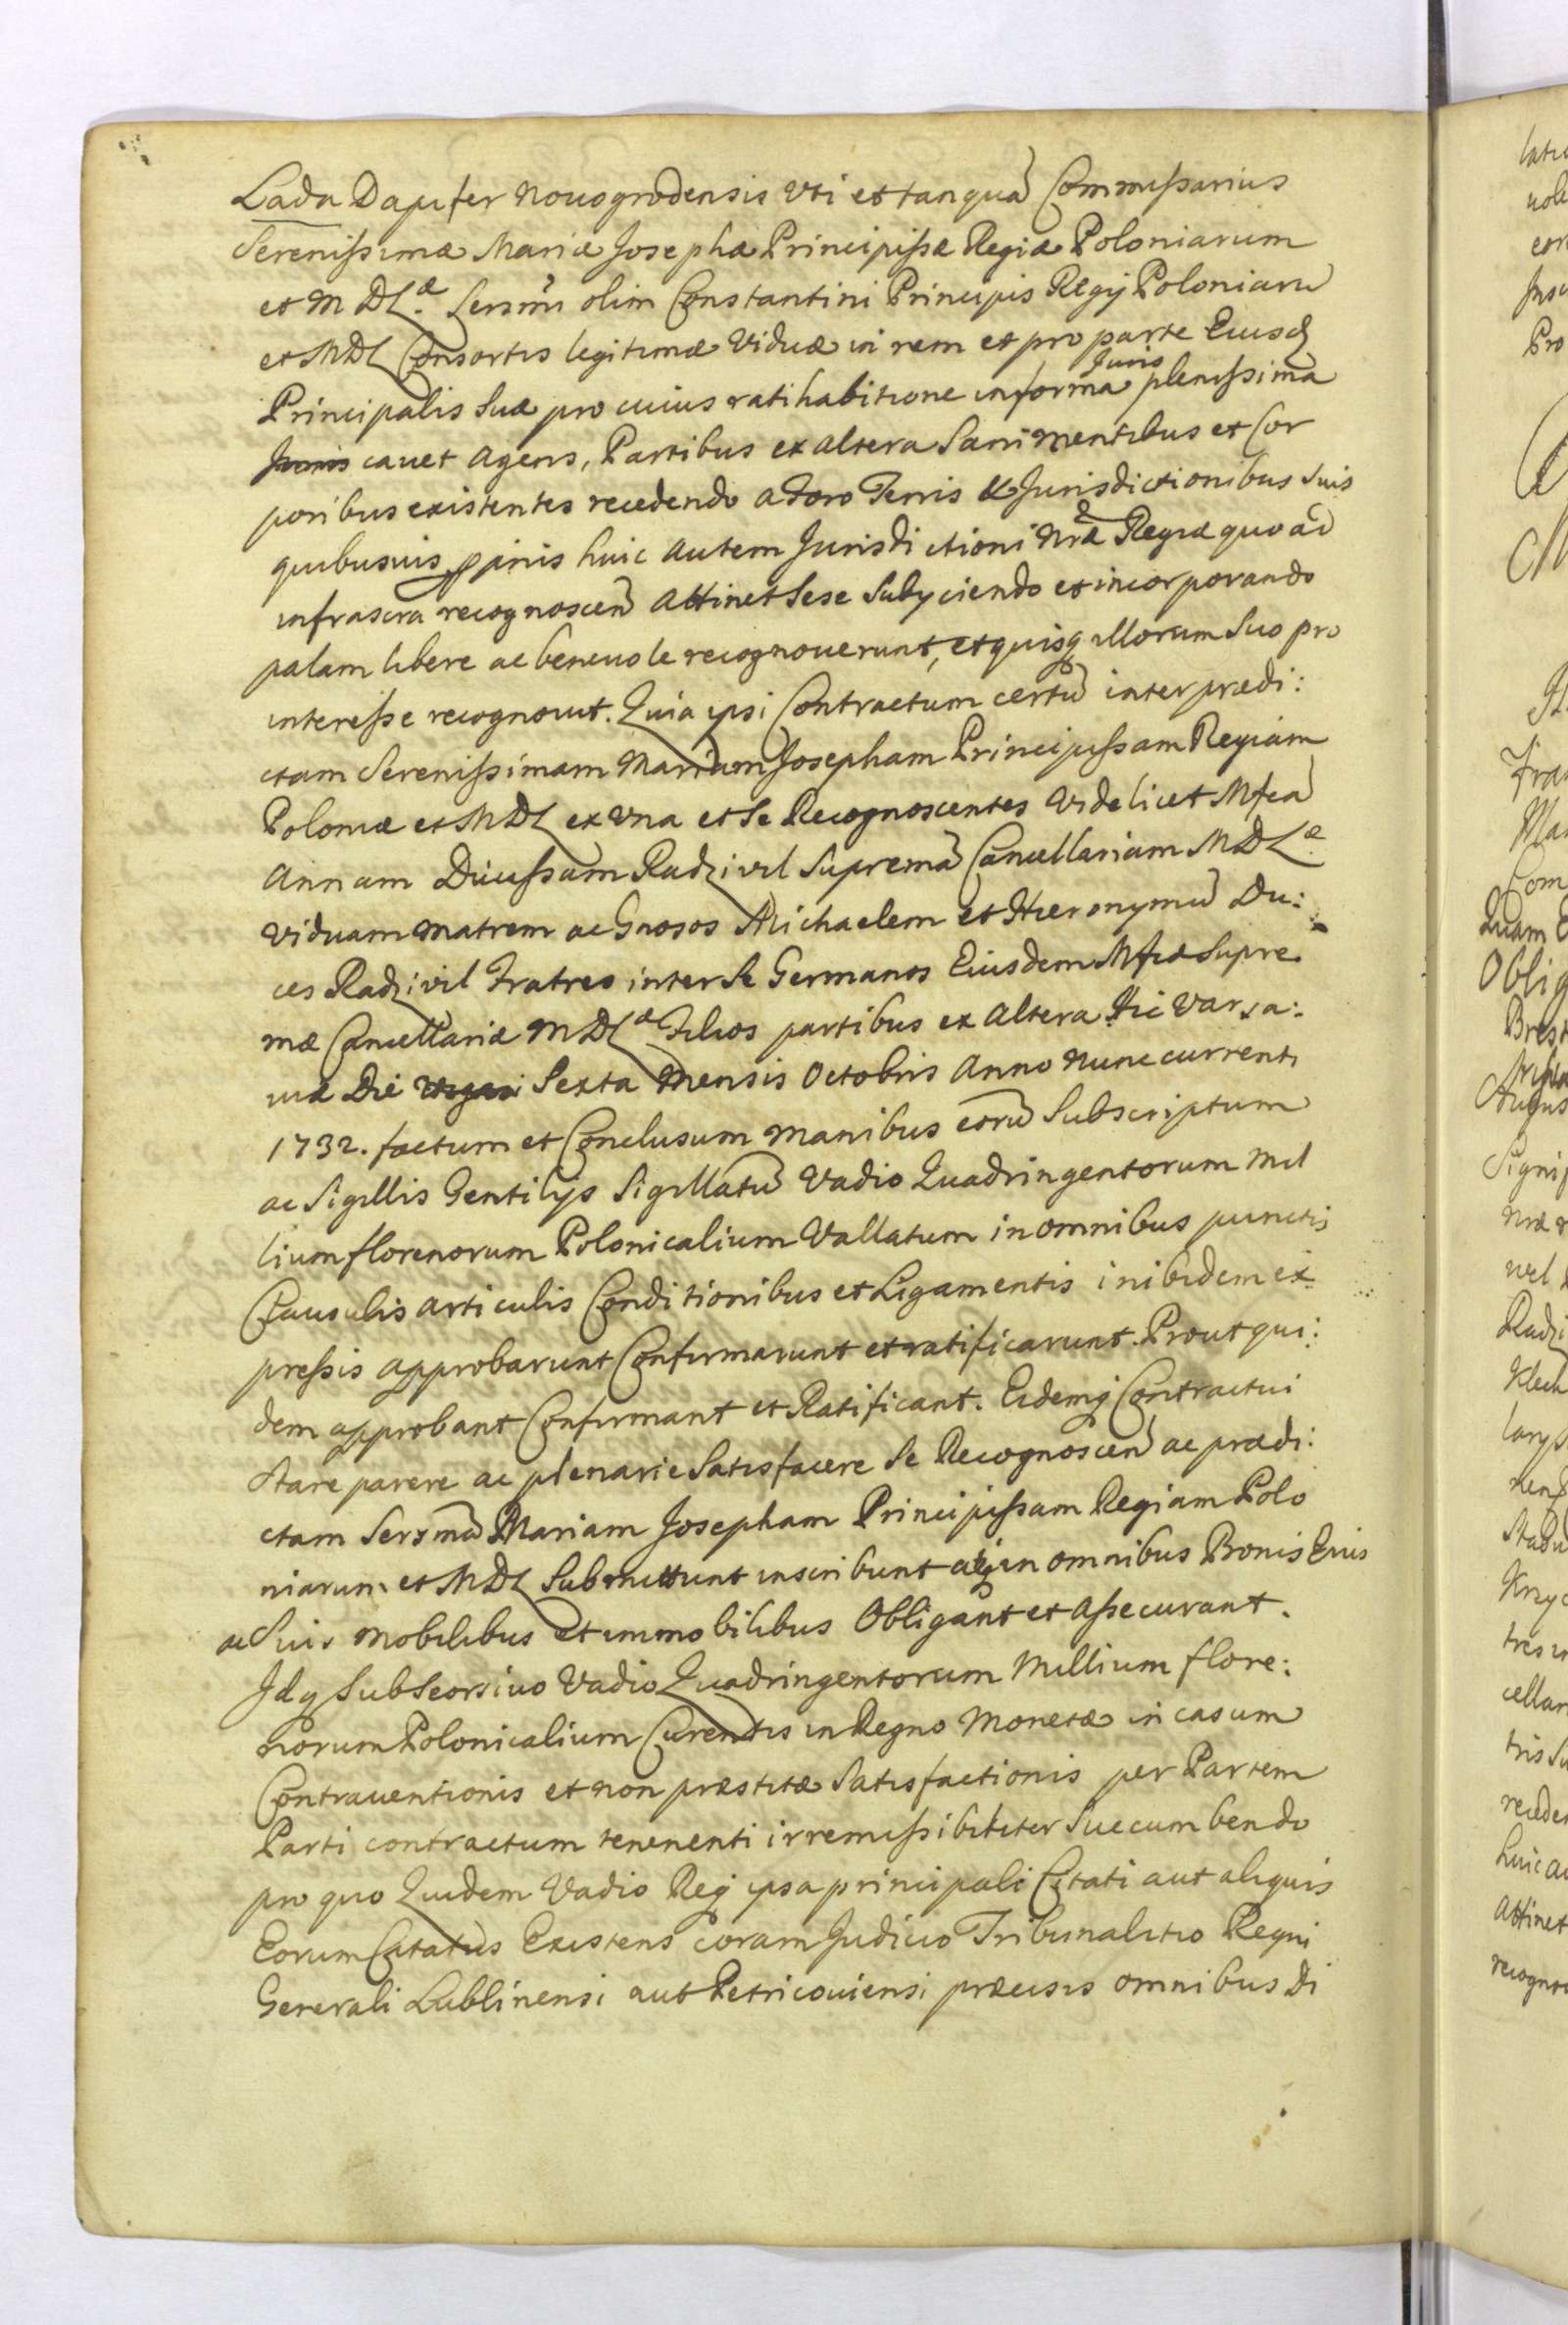 Lada Dapifer Novogrodensis uti et tanquã Commissarius
Serenissimæ Mariæ Josephæ Principissæ Regiæ Poloniarum
et M D Læ Sersmi olim Constantini Principis Regij Poloniarũ
et M D L Consortis legitimæ Viduæ in rem et pro parte Eiusq
Principalis Suæ pro cuius ratihabitione in forma Juris plenissima
cavet agens, Partibus ex altera Sani mentibus et Cor
poribus existentes recedendo a Foro Terris et Jurisdictionibus Suis
quibusvis ppriis huic autem Jurisdictioni Nrã Regiæ quo ad
infrascra recognoscen attinet Sese Subyciendo et incorporando
palam libere ac benevole recognoverunt, et quisq illorum Suo pro
interesse recognovit. Quia ipsi Contractum certũ inter prædi:
ctam Serenissimam Mariam Josepham Principissam Regiam
Poloniæ et M D L ex una et Se Recognoscentes videlicet Mfcã
Annam Ducissam Radzivil Supremã Cancellariam M D Læ
Viduam Matrem ac Gnosos Michaelem et Hieronymũ Du:
ces Radzivil Fratres inter Se Germanos Eiusdem Mfcæ Supre
mæ Cancellariæ M D Læ Filios partibus ex altera Hic Varsa:
viæ Die Sexta Mensis Octobris Anno nunc currenti
1732. factum et Conclusum manibus eorũ Subscriptum
ac Sigillis Gentilijs Sigillatũ Vadio Quadringentorum Mil
lium florenorum Polonicalium Vallatum in omnibus punctis
Clausulis articulis Conditionibus et Ligamentis inibidem ex
pressis approbarunt Confirmarunt et ratificarunt. Prout qui:
dem approbant Confirmant et Ratificant. Eidemq Contractui
Stare parere ac plenarie Satisfacere Se Recognoscen ac prædi:
ctam Sersmã Mariam Josepham Principissam Regiam Polo
niarum et M D L Submittunt inscribunt in omnibus Bonis Eius
ac Suis mobilibus et immobilibus Obligant et assecurant.
Idq Sub Seorsivo Vadio Quadringentorum Millium flore:
norum Polonicalium Curentis in Regno Monetæ in casum
Contraventionis et non præstitæ Satisfactionis per Partem
Parti contractum tenenenti irremissibiliter Succumbendo
pro quo Quidem Vadio Req ipsa principali Citati aut aliquis
Eorum Citatus Existens coram Judicio Tribunalitio Regni
Generali Lublinensi aut Petricoviensi præcisis omnibus Di